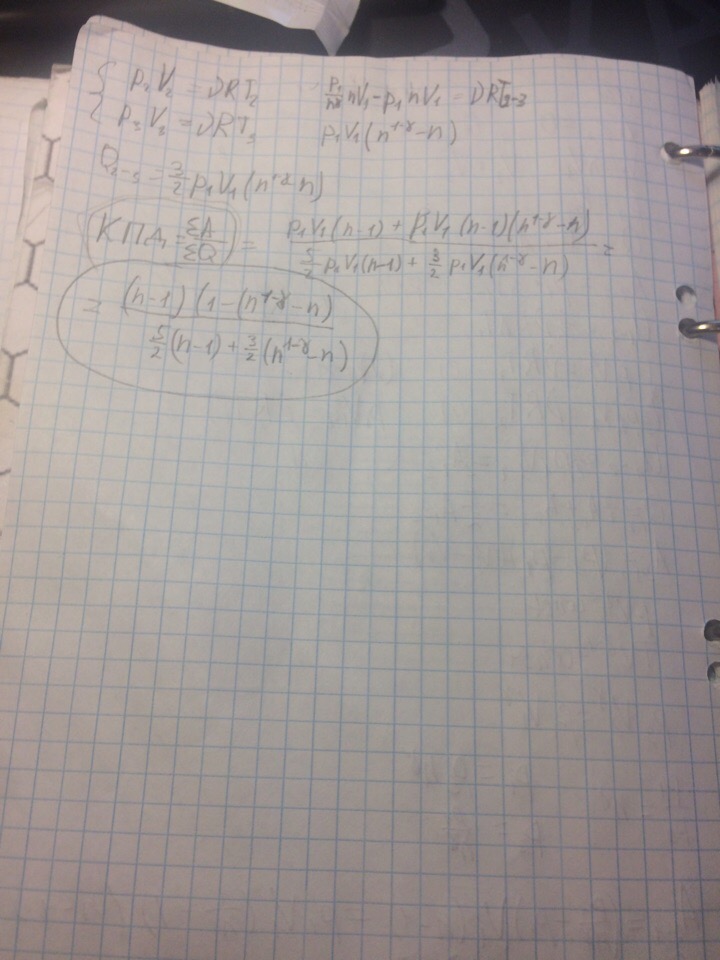 { p₂V₂ = νRT₂
p₃V₃ = νRT₃
p₁/n^γ nV₁ - p₁nV₁ = νRT₂₋₃
p₁V₁(n^(1-γ) - n)
Q₂₋₃ = 3/2 p₁V₁(n^(1-γ) - n)
КПД, = ΣA/ΣQ = (p₁V₁(n-1) + p₁V₁(n-1)(n^(1-γ) - n)) / (5/2 p₁V₁(n-1) + 3/2 p₁V₁(n^(1-γ) - n)) =
= (n-1)(1-(n^(1-γ) - n) / (5/2(n-1) + 3/2(n^(1-γ) - n))